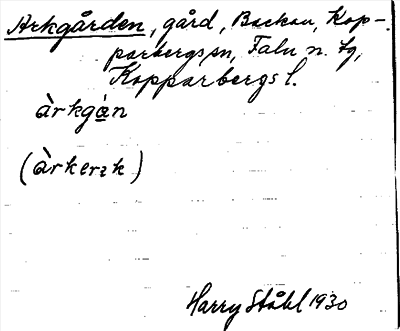 Arkgården, gård, Backau, Kop-
parbergs sn, Falu n. tg,
Kopparbergs l.
àrkgà̱n
(àrkerʒk)
Harry Ståhl 1930